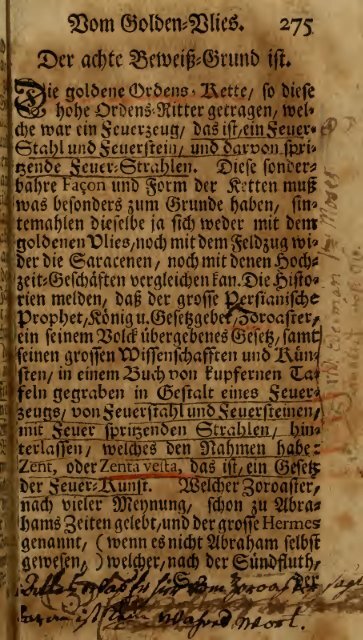 Vom Golden-Vlies. 275
Der achte Beweiß-Grund ist.
Die goldene Ordens-Kette, so diese
hohe Ordens-Ritter getragen, wel-
che war ein Feuerzeug, das ist/ein Feuer-
Stahl und Feuerstein, und darvon spri-
tzende Feuer-Strahlen. Diese sonder-
bahre Façon und Form der Ketten muß
was besonders zum Grunde haben, sin-
temahlen dieselbe ja sich weder mit dem
goldenen Vlies, noch mit dem Feldzug wi-
der die Saracenen, noch mit denen Hoch-
zeit-Geschäften vergleichen kan. Die Histo-
rien melden, daß der grosse Persianische
Prophet, König u. Gesetzgeber, Zoroaster,
ein seinem Volck übergebenes Gesetz, samt
seinen grossen Wissenschafften und Kün-
sten, in einem Buch von kupfernen Ta-
feln gegraben in Gestalt eines Feuer-
zeugs, von Feuerstahl und Feuersteinen,
mit Feuer spritzenden Strahlen, hin-
terlassen, welches den Nahmen habe:
Zent, oder Zenta vesta, das ist, ein Gesetz
der Feuer-Kunst. Welcher Zoroaster,
nach vieler Meynung, schon zu Abra-
hams Zeiten gelebt, und der grosse Hermes
genannt, (wenn es nicht Abraham selbst
gewesen,) welcher, nach der Sündfluth,
der
von Zoroaster